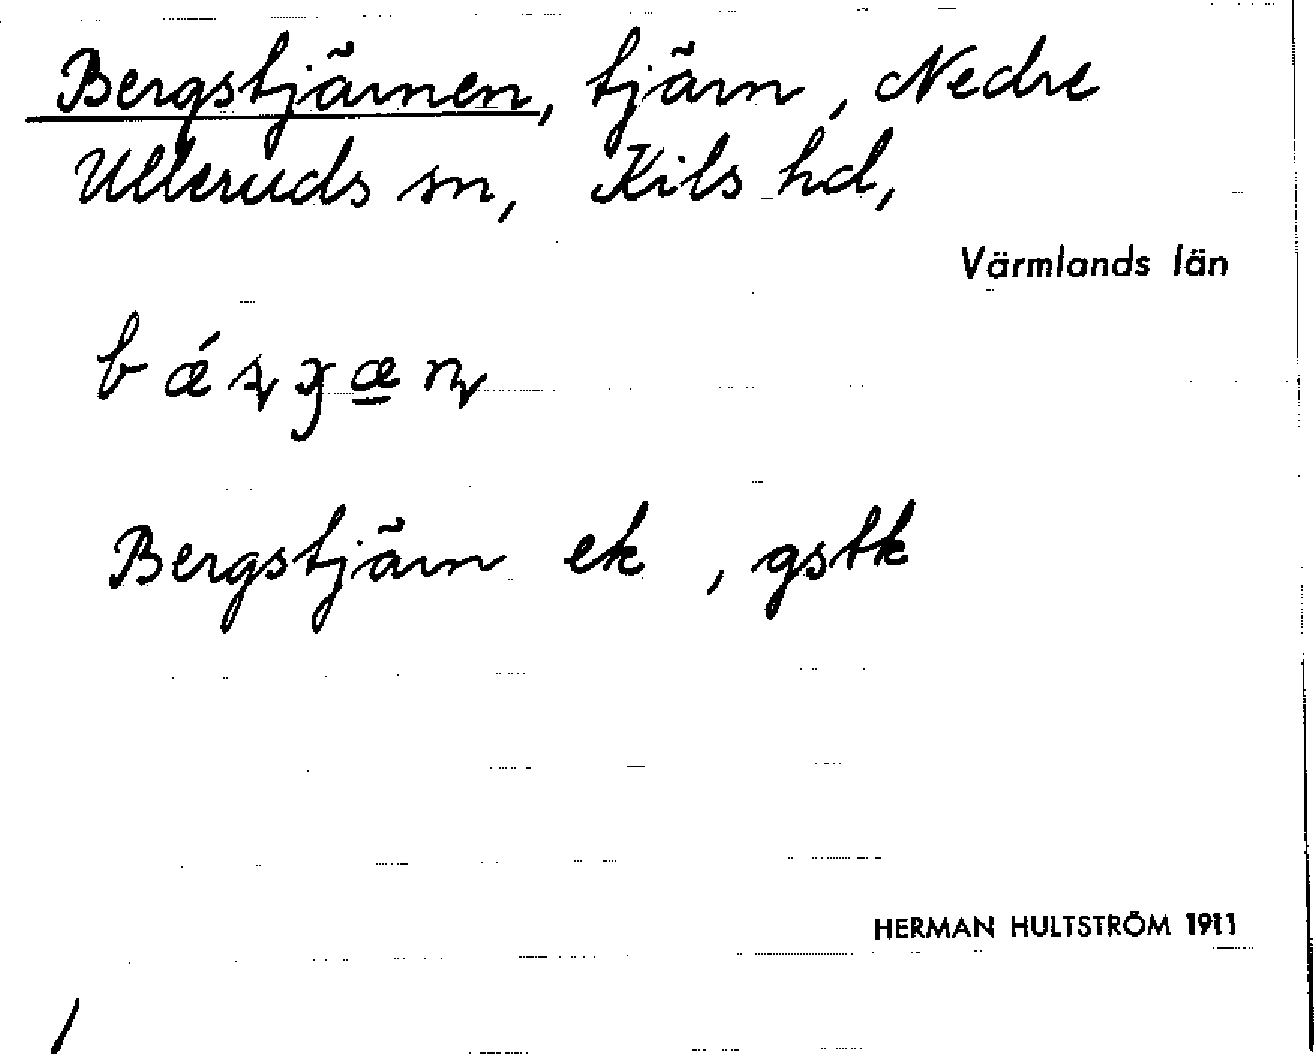 Bergstjärnen, tjärn, Nedre
Ulleruds sn, Kils hd,
Värmlands län
Bergstjärn ek, gstk
HERMAN HULTSTRÖM 1911